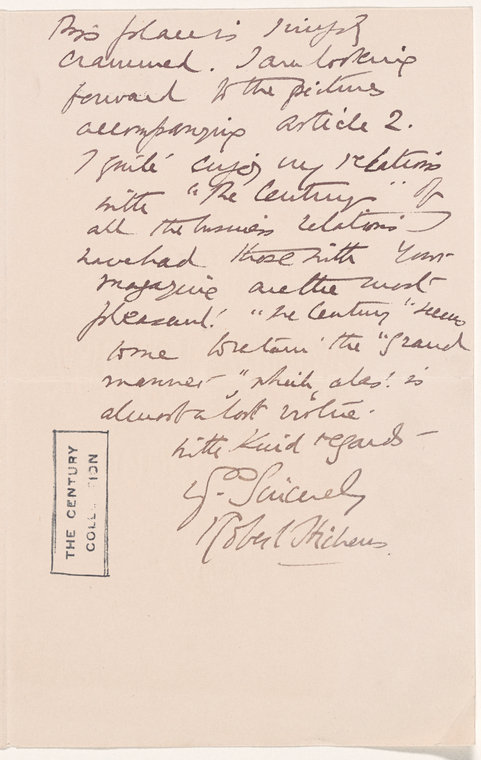 This place is simply
crammed. I am looking
forward to the pictures
accompanying article 2.
I quite enjoy my relations
with "The Century" of
all the business relations I
have had those with your
magazine are the most
pleasant! "The Century" seems
to me to retain the "grand
manner", which, alas! is
almost a lost virtue.
With kind regards —
Yrs Sincerely
Robert Hichens.
THE CENTURY
COLL TION